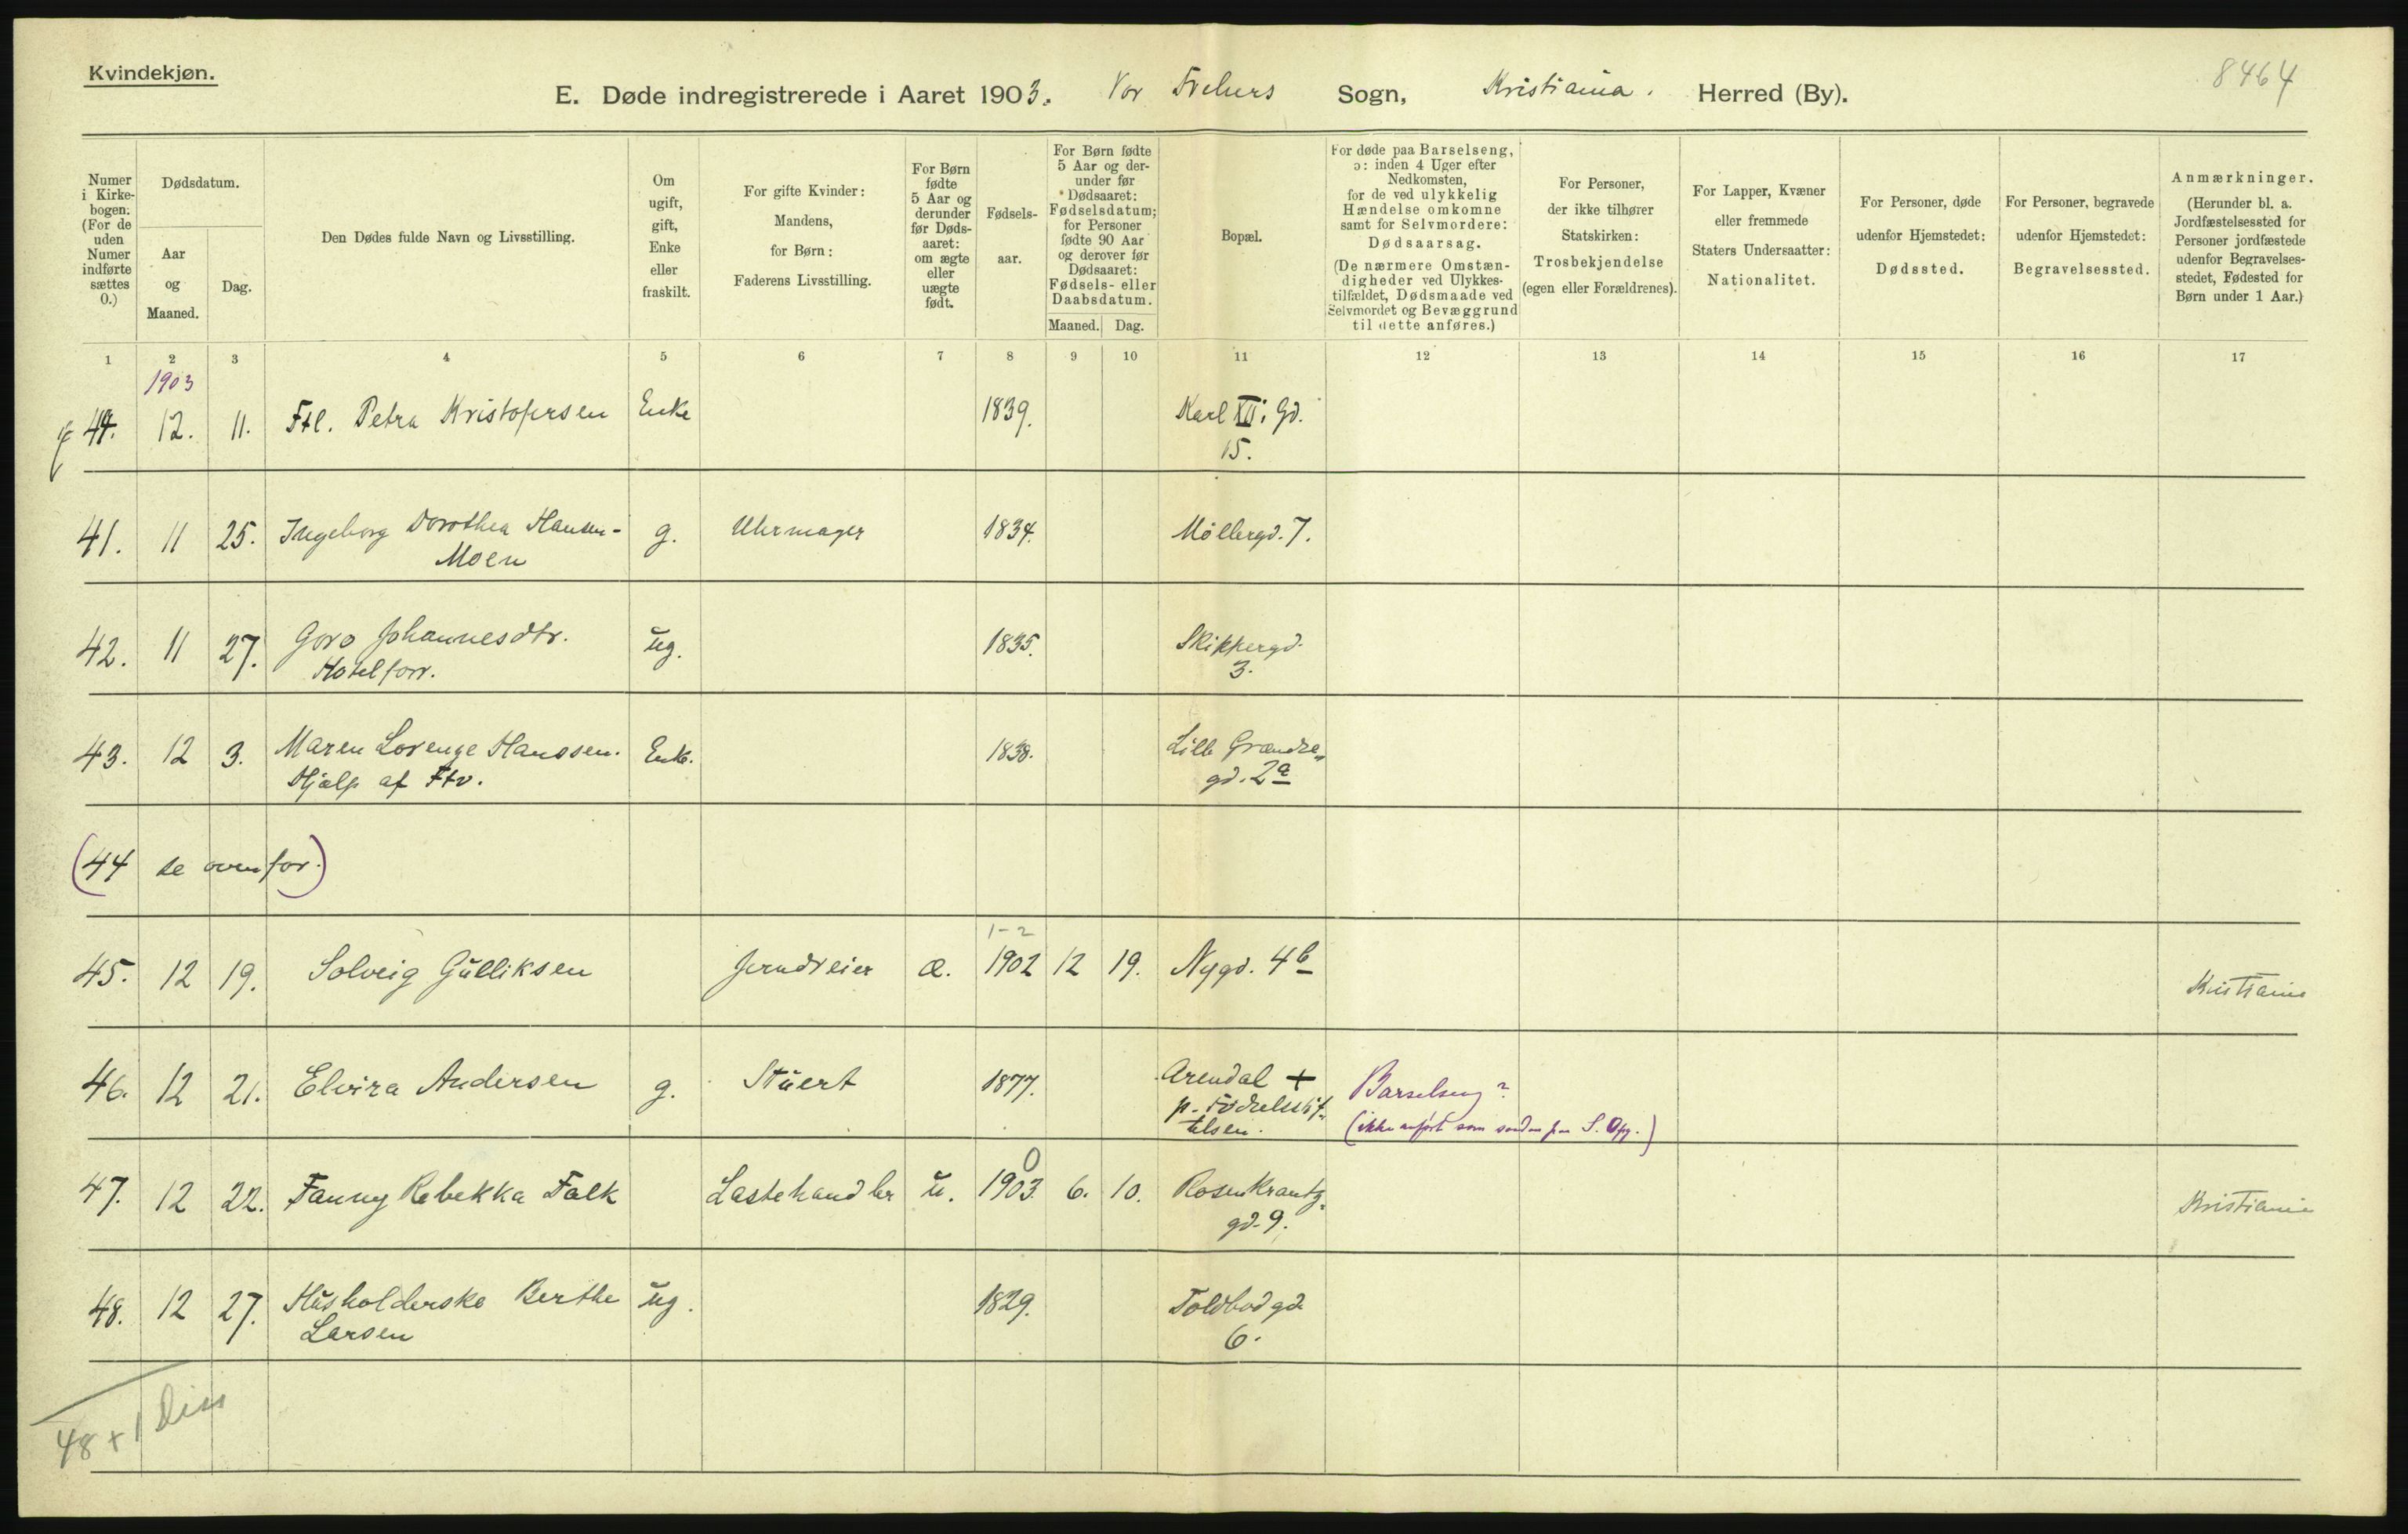 Kvindekjøn.
8464
E. Døde indregistrerede i Aaret 1903. Vor Frelsers Sogn, Kristiania. Herred (By).
Numer i Kirkebogen. (For de uden Numer indførte sættes 0.)
Dødsdatum.
Aar og Maaned.
Dag.
Den Dødes fulde Navn og Livsstilling.
Om ugift, gift, Enke eller fraskilt.
For gifte Kvinder: Mandens, for Børn: Faderens Livsstilling.
For Børn fødte 5 Aar og derunder før Dødsaaret: om ægte eller uægte født.
Fødselsaar.
For Børn fødte 5 Aar og derunder før Dødsaaret: Fødselsdatum; for Personer fødte 90 Aar og derover før Dødsaaret: Fødsels- eller Daabsdatum.
Maaned. Dag.
Bopæl.
For døde paa Barselseng, ɔ: inden 4 Uger efter Nedkomsten, for de ved ulykkelig Hændelse omkomne samt for Selvmordere: Dødsaarsag. (De nærmere Omstændigheder ved Ulykkestilfældet, Dødsmaade ved Selvmordet og Bevæggrund til dette anføres.)
For Personer, der ikke tilhører Statskirken: Trosbekjendelse (egen eller Forældrenes).
For Lapper, Kvæner eller fremmede Staters Undersaatter: Nationalitet.
For Personer, døde udenfor Hjemstedet: Dødssted.
For Personer, begravede udenfor Hjemstedet: Begravelsessted.
Anmærkninger. (Herunder bl. a. Jordfæstelsessted for Personer jordfæstede udenfor Begravelsesstedet, Fødested for Børn under 1 Aar.)
1 2 3 4 5 6 7 8 9 10 11 12 13 14 15 16 17
1903
44. 12. 11. Ftl. Petra Kristofersen Enke 1839. Karl XII: Gd.
15.
41. 11 25. Ingeborg Dorothea Hansen-
Moen g. Uhrmager 1834. Møllergd. 7.
42. 11 27. Goro Johannesdtr.
Hotelforr. ug. 1835. Skippergd.
3.
43. 12 3. Maren Lorense Hanssen.
Hjælp af Ftv. Enke. 1838. Lille Grændse
gd. 2a
(44 se ovenfor.)
1-2
45. 12 19. Solveig Gulliksen Jerndreier æ. 1902 12 19. Nygd. 4b Kristiania
46. 12 21. Elvira Andersen g. Stuert 1877. Arendal +
p. Fødselsstif-
telsen.
Barselseng?
(ikke anført som saadan paa S. Opg.)
0
47. 12 22. Fanny Rebekka Falk Lastehandler u. 1903. 6. 10. Rosenkrantz-
gd. 9. Kristiania
48. 12 27. Husholderske Berthe
Larsen ug. 1829. Toldbodgd.
6.
48 + 1 Diss